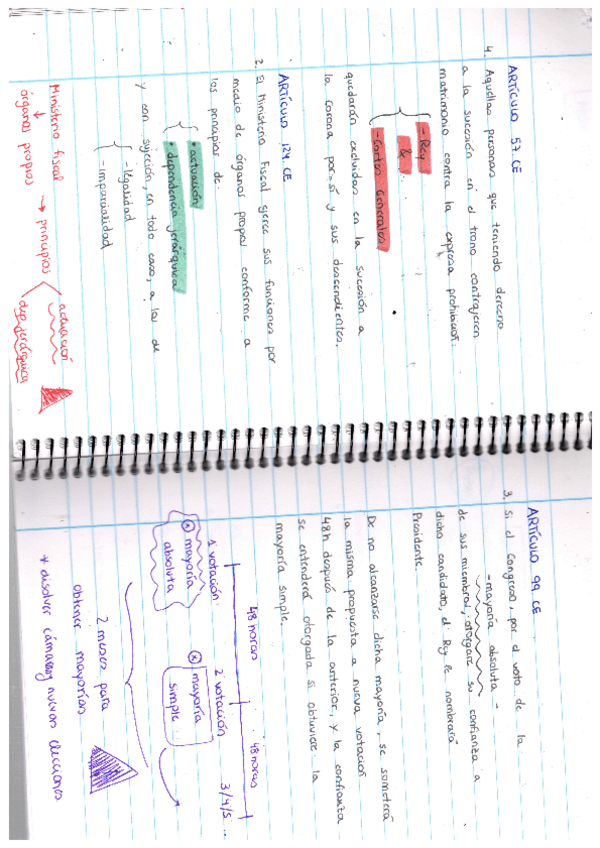 ARTÍCULO 57 CE
4. Aquellas personas que teniendo derecho
a la sucesión en el trono contrajeren
matrimonio contra la expresa prohibición:
- Rey
&
- Cortes Generales
quedarán excluidas en la sucesión a
la Corona por sí y sus descendientes.
ARTÍCULO 124 CE
2. El Ministerio Fiscal ejerce sus funciones por
medio de órganos propios conforme a
los principios de:
• actuación
• dependencia jerárquica
y con sujeción, en todo caso, a los de
- legalidad
- imparcialidad
Ministerio fiscal
órganos propios → principios
actuación
dep. jerárquica
ARTÍCULO 99 CE
3. Si el Congreso, por el voto de la
- mayoría absoluta -
de sus miembros, otorgare su confianza a
dicho candidato, el Rey le nombrará
Presidente.
De no alcanzarse dicha mayoría, se someterá
la misma propuesta a nueva votación
48h después de la anterior, y la confianza
se entenderá otorgada si obtuviere la
mayoría simple.
48 horas
48 horas
1 votación
2 votación
3/4/5...
mayoría
absoluta
mayoría
simple
2 meses para
obtener mayorías
* disolver cámaras y nuevas elecciones